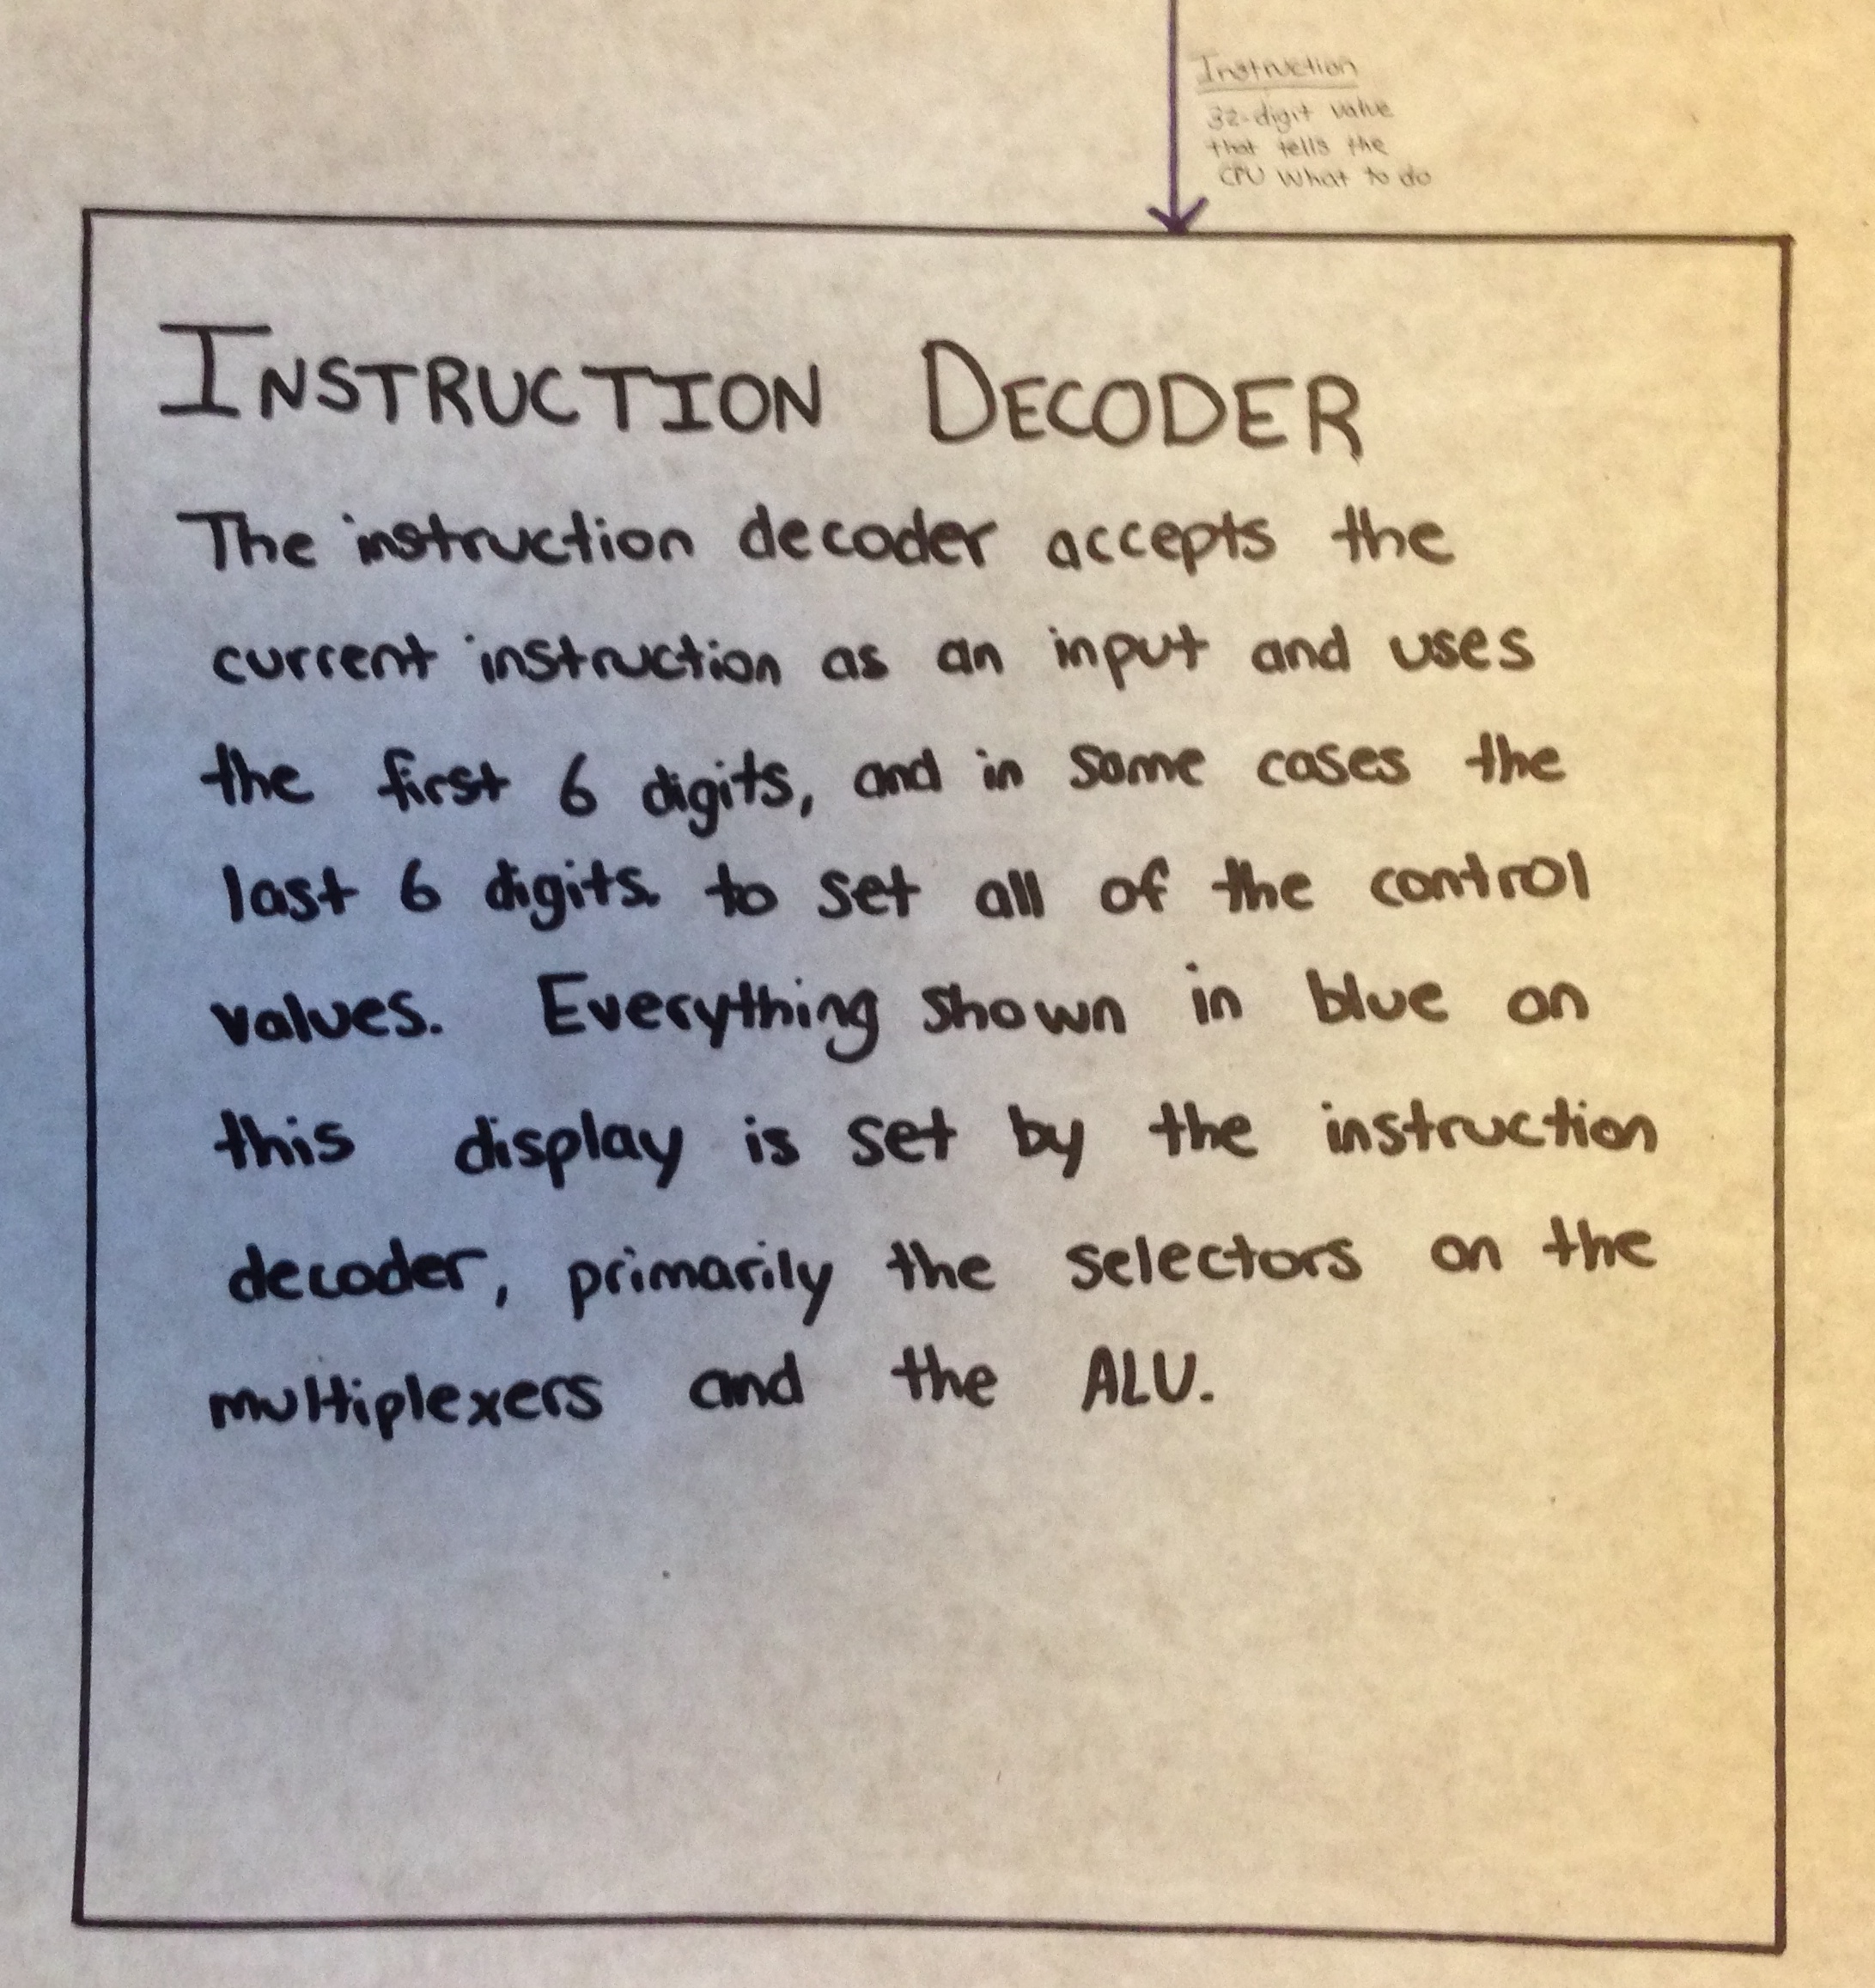 Instruction
32-digit value
that tells the
CPU what to do
INSTRUCTION DECODER
The instruction decoder accepts the
current instruction as an input and uses
the first 6 digits, and in some cases the
last 6 digits. to set all of the control
values. Everything shown in blue on
this display is set by the instruction
decoder, primarily the selectors on the
multiplexers and the ALU.